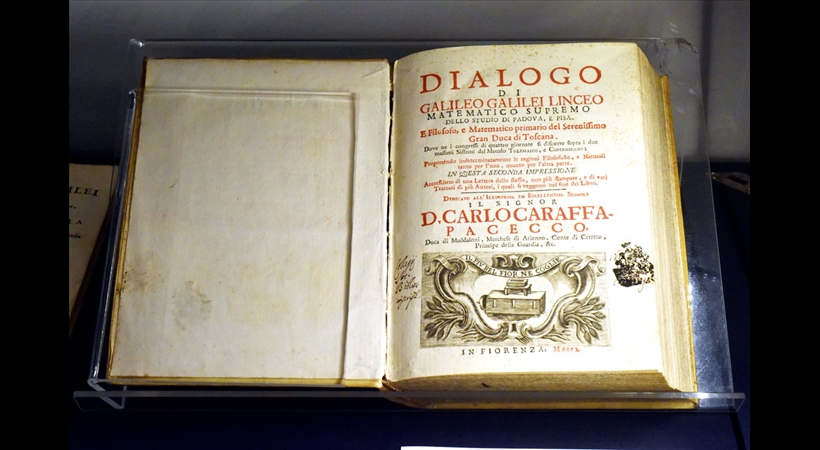 DIALOGO
DI
GALILEO GALILEI LINCEO
MATEMATICO SUPREMO
DELLO STUDIO DI PADOVA, E PISA.
E Filosofo, e Matematico primario del Serenissimo
Gran Duca di Toscana.
Dove ne i congressi di quattro giornate si discorre sopra i due
massimi Sistemi del Mondo TOLEMAICO, e COPERNICANO;
Proponendo indeterminatamente le ragioni Filosofiche, e Naturali
tanto per l'una, quanto per l'altra parte.
IN QUESTA SECONDA IMPRESSIONE
Accresciuto di una Lettera dello stesso, non più stampata, e di varj
Trattati di più Autori, i quali si veggono nel fine del Libro.
DEDICATO ALL'ILLUSTRISS. ED ECCELLENTISS. SIGNORE
IL SIGNOR
D. CARLO CARAFFA-
PACECCO.
Duca di Maddaloni, Marchese di Arienzo, Conte di Cerreto,
Principe della Guardia, &c.
IL PIU BEL FIOR NE COGLIE
IN FIORENZA,